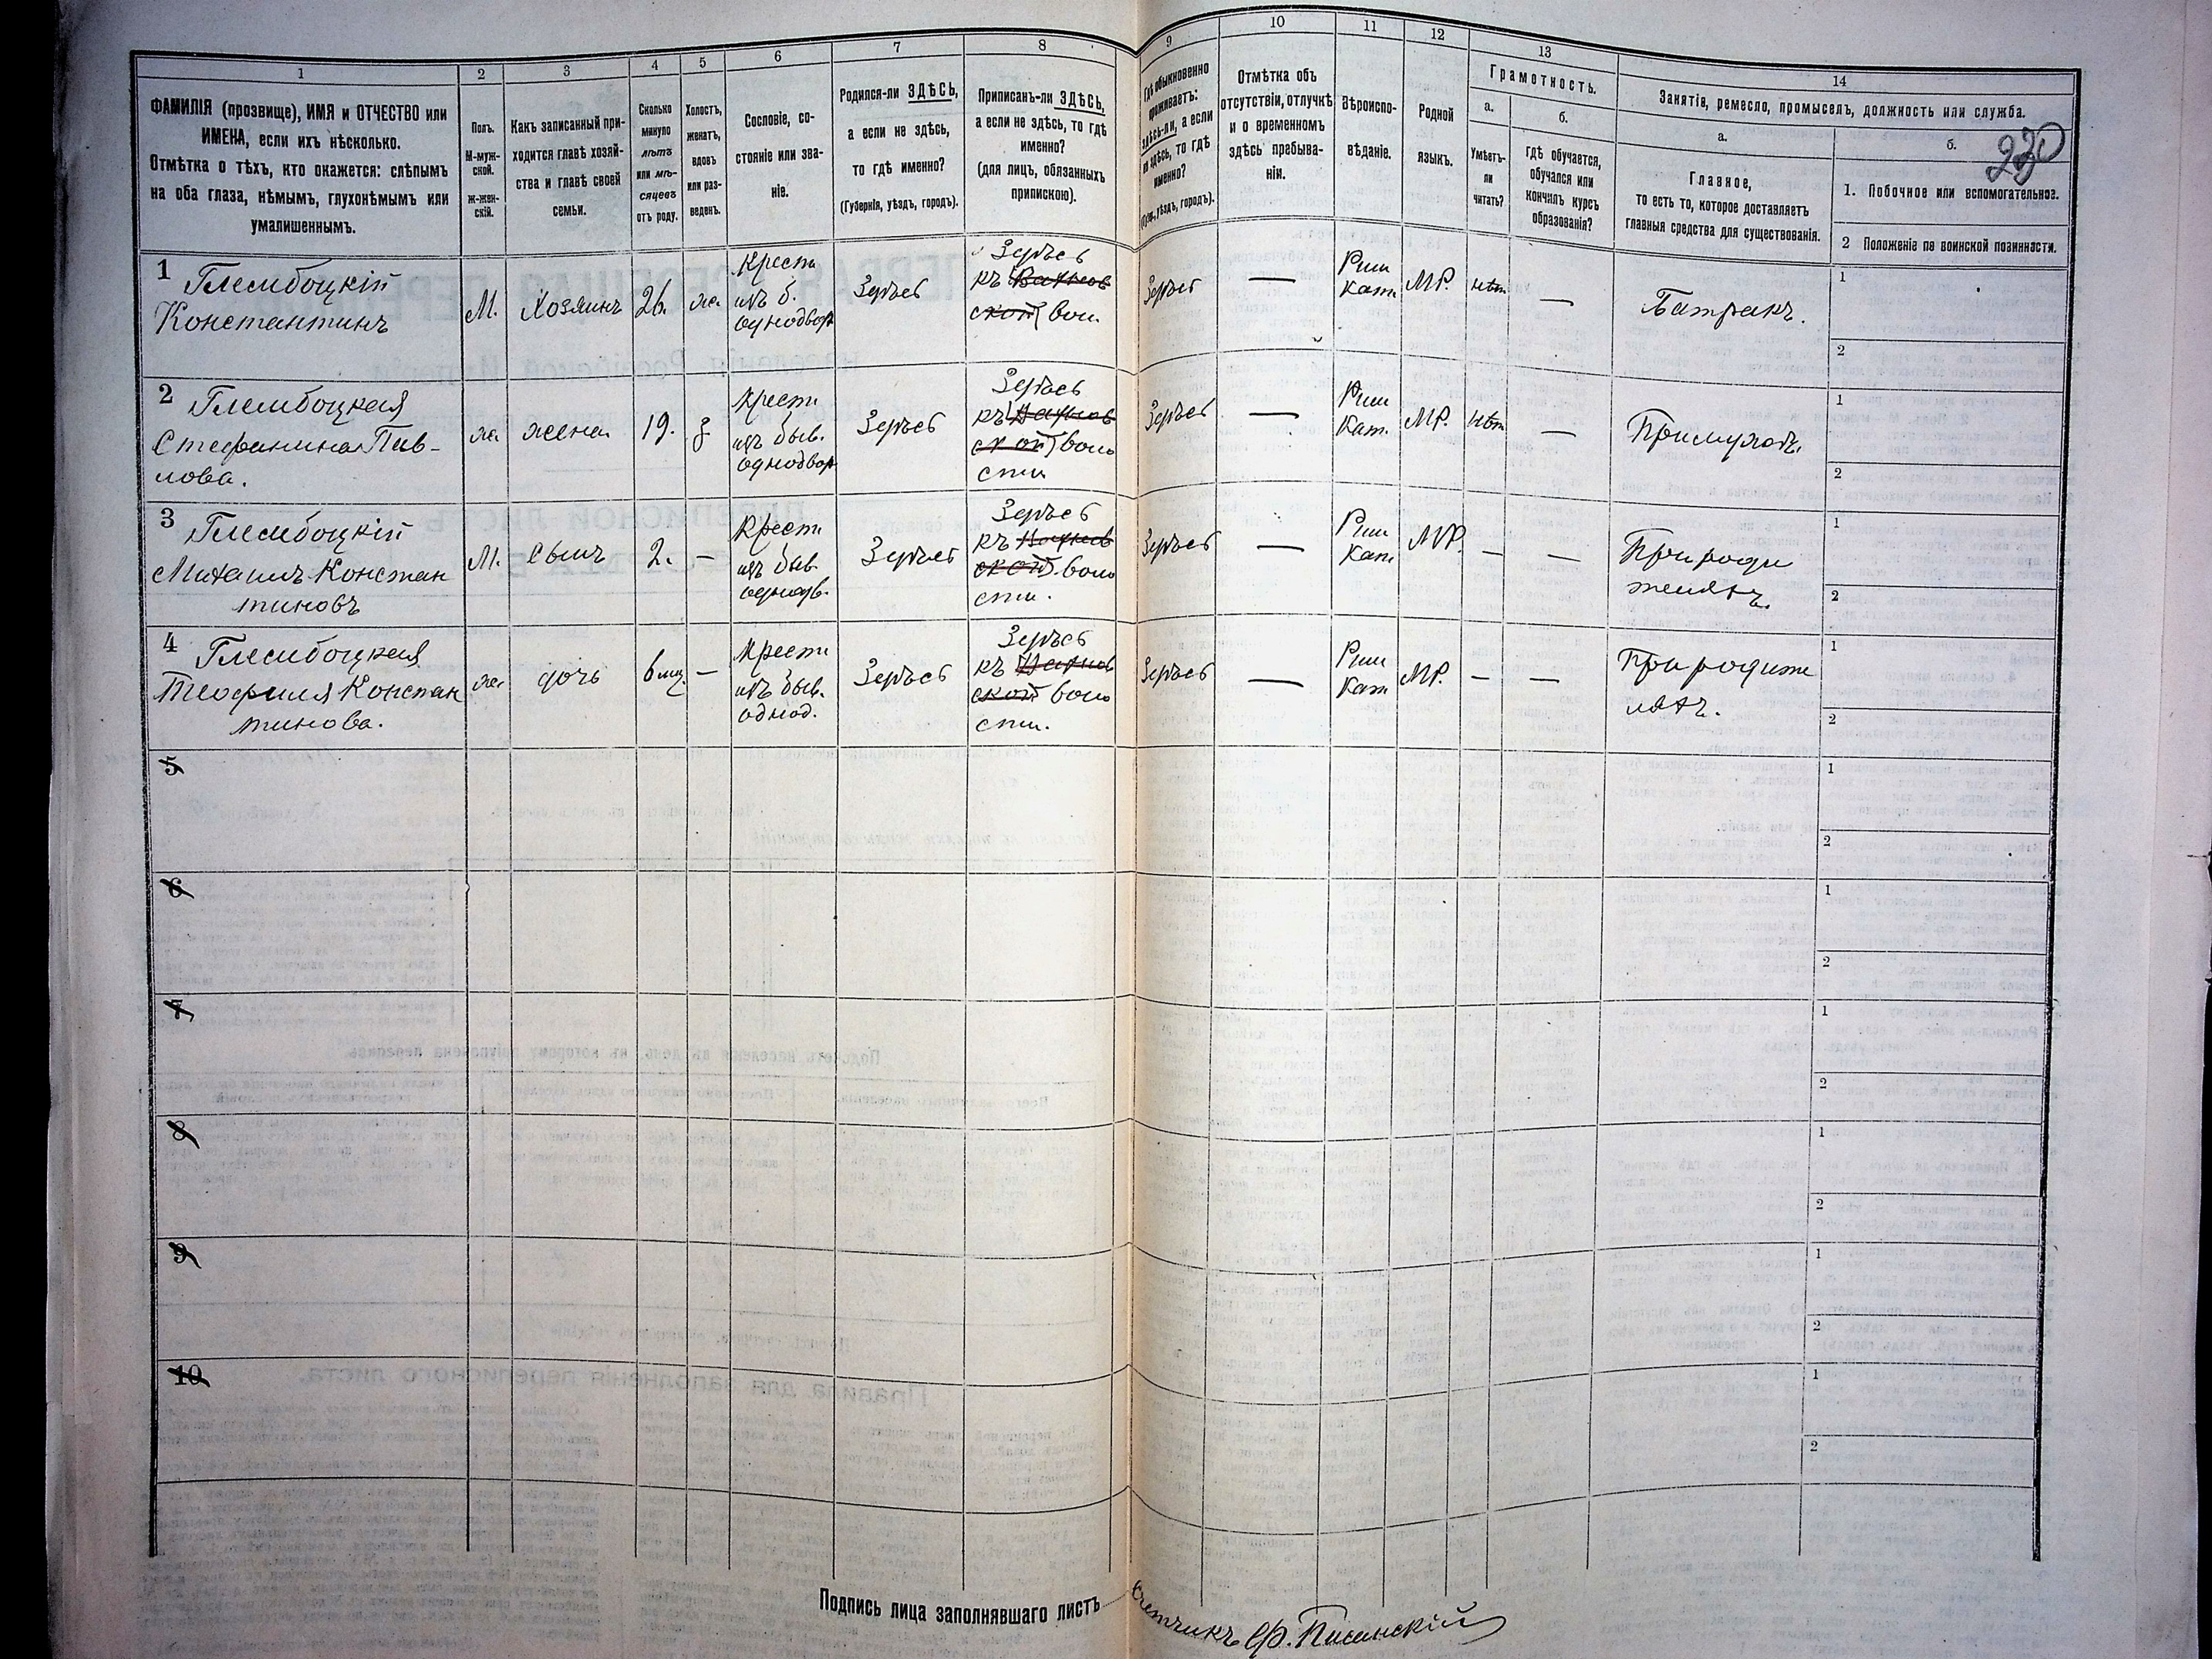 1
2
3
4
5
6
7
8
9
10
11
12
13
14
ФАМИЛІЯ (прозвище), ИМЯ и ОТЧЕСТВО или
ИМЕНА, если ихъ нѣсколько.
Отмѣтка о тѣхъ, кто окажется: слѣпымъ
на оба глаза, нѣмымъ, глухонѣмымъ или
умалишеннымъ.
Полъ.
М-муж-
ской.
ж-жен-
скій.
Какъ записанный при-
ходится главѣ хозяй-
ства и главѣ своей
семьи.
Сколько
минуло
лѣтъ
или мѣ-
сяцевъ
отъ роду.
Холостъ,
женатъ,
вдовъ
или раз-
веденъ.
Сословіе, со-
стояніе или зва-
ніе.
Родился-ли ЗДѢСЬ,
а если не здѣсь,
то гдѣ именно?
(Губернія, уѣздъ, городъ).
Приписанъ-ли ЗДѢСЬ,
а если не здѣсь, то гдѣ
именно?
(для лицъ, обязанныхъ
припискою).
Гдѣ обыкновенно
проживаетъ:
здѣсь-ли, а если
не здѣсь, то гдѣ
именно?
уѣздъ, городъ).
Отмѣтка объ
отсутствіи, отлучкѣ
и о временномъ
здѣсь пребыва-
ніи.
Вѣроиспо-
вѣданіе.
Родной
языкъ.
Грамотность.
а.
Умѣетъ-
ли
читать?
б.
гдѣ обучается,
обучался или
кончилъ курсъ
образованія?
Занятія, ремесло, промыселъ, должность или служба.
а.
Главное,
то есть то, которое доставляетъ
главныя средства для существованія.
б.
1. Побочное или вспомогательное.
2 Положеніе по воинской повинности.
1 Глембоцкій
Константинъ
М.
Хозяинъ
26.
жа.
Крестн
изъ б.
однодвор
Здѣсь
Здѣсь
къ
ской вол.
Здѣсь
—
Рим
Кат.
МР.
нѣт
—
Батракъ.
1
2
2 Глембоцкая
Стефанина Пав-
лова.
жа
жена
19.
з
Крестн
изъ быв.
однодвор
Здѣсь
Здѣсь
къ
ской воло
сти
Здѣсь
—
Рим
Кат.
МР.
нѣт
—
При мужѣ.
1
2
3 Глембоцкій
Михаилъ Констан
тиновъ
М.
Сынъ
2.
—
Крестн
изъ быв.
однодв.
Здѣсь
Здѣсь
къ
ской воло
сти.
Здѣсь
—
Рим
Кат
МР.
—
—
При роди
теляхъ.
1
2
4 Глембоцкая
Теофиля Констан
тинова.
жа
дочь
6 мц.
—
Крестн
изъ быв.
однод.
Здѣсь
Здѣсь
къ
ской воло
сти.
Здѣсь
—
Рим
Кат
МР.
—
—
При родите
ляхъ.
1
2
5
1
2
6
1
2
7
1
2
8
1
2
9
1
2
10
1
2
Подпись лица заполнявшаго листъ Счетчикъ Ф. Писанскій